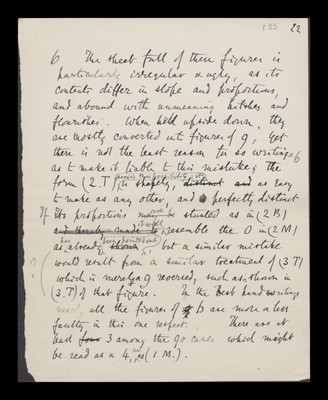 22
6 The sheet full of these figures is
particularly irregular & ugly, as its
contents differ in slope and proportions,
and abound with unmeaning hitches and
flourishes. When held upside down, they
are mostly converted into figures of 9, yet
there is not the least reason for so writing a 6
as to make it liable to this mistake; the
form (2.T) is shapely, distinct and as easy
to make as any other, and perfectly distinct
If its proportions may be stunted as in (2 B)
and thereby made to resemble the 0 in (2 M)
as already shown, but a similar mistake
would result from a similar treatment of (3.T)
which is merely a 9 reversed, such as, shown in
(3.T) of that figure. In the best handwritings
all the figures of 6 are more or less
faulty in this one respect. There are at
least four 3 among the 90 cases which might
be read as a 4, as (1 M.).